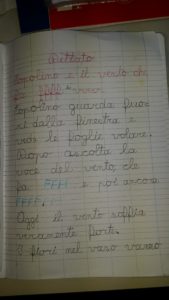 Dettato
Topolino e il vento che
fa FFFF
Topolino guarda fuo-
ri dalla finestra e
vede le foglie volare.
Dopo ascolta la
voce del vento che
fa FFFF e poi ancora
FFFF.
Oggi il vento soffia
veramente forte.
I fiori nel vaso vanno